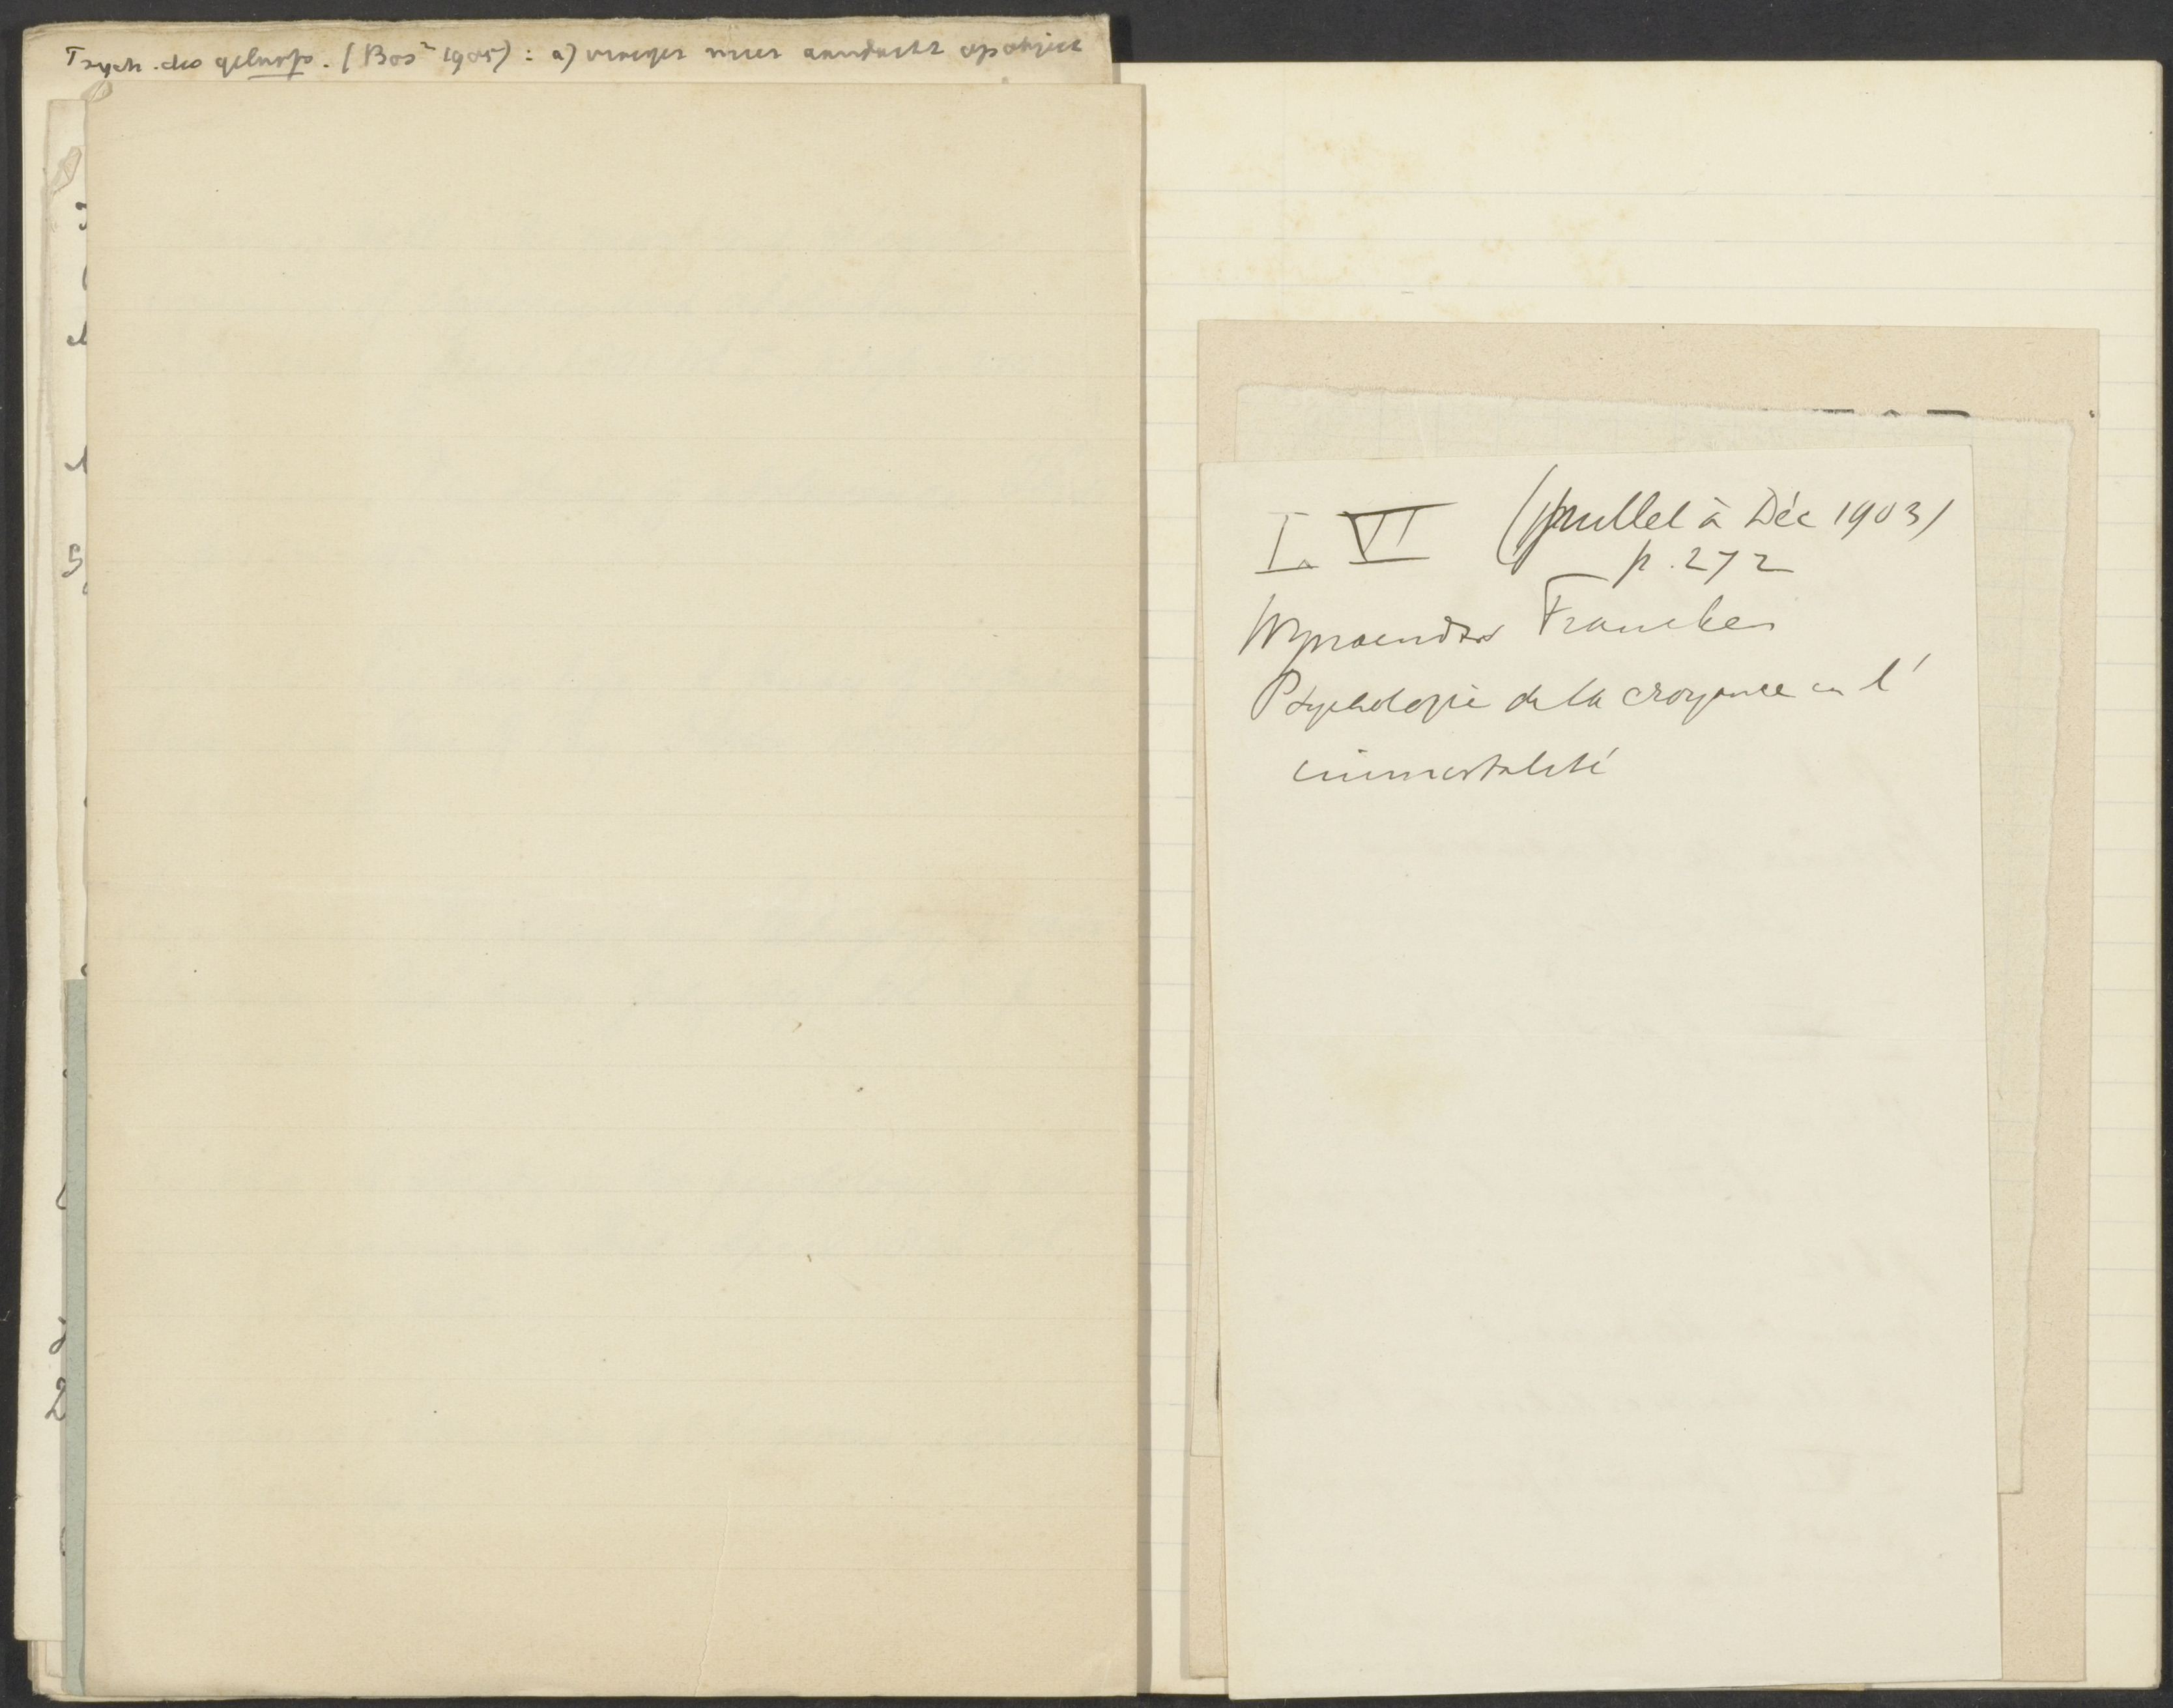 Psych. des geloofs. (Bos 1905): a) vroeger meer aandacht op object
I. VI (Juillet à Déc 1903)
p. 272
Wynaendts Francken
Psychologie de la croyance en l'
immortalité